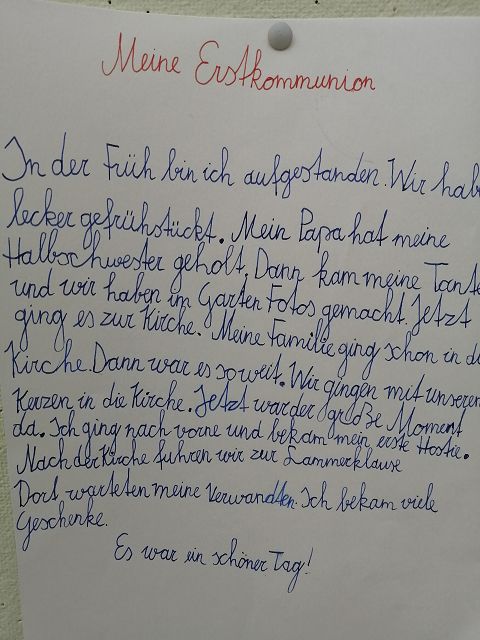 Meine Erstkommunion
In der Früh bin ich aufgestanden. Wir hab
lecker gefrühstückt. Mein Papa hat meine
Halbschwester geholt. Dann kam meine Tante
und wir haben im Garten Fotos gemacht. Jetzt
ging es zur Kirche. Meine Familie ging schon in di
Kirche. Dann war es soweit. Wir gingen mit unseren
Kerzen in die Kirche. Jetzt war der große Moment
da. Ich ging nach vorne und bekam mein erste Hostie.
Nach der Kirche fuhren wir zur Lammerklause
Dort warteten meine Verwandten. Ich bekam viele
Geschenke.
Es war ein schöner Tag!